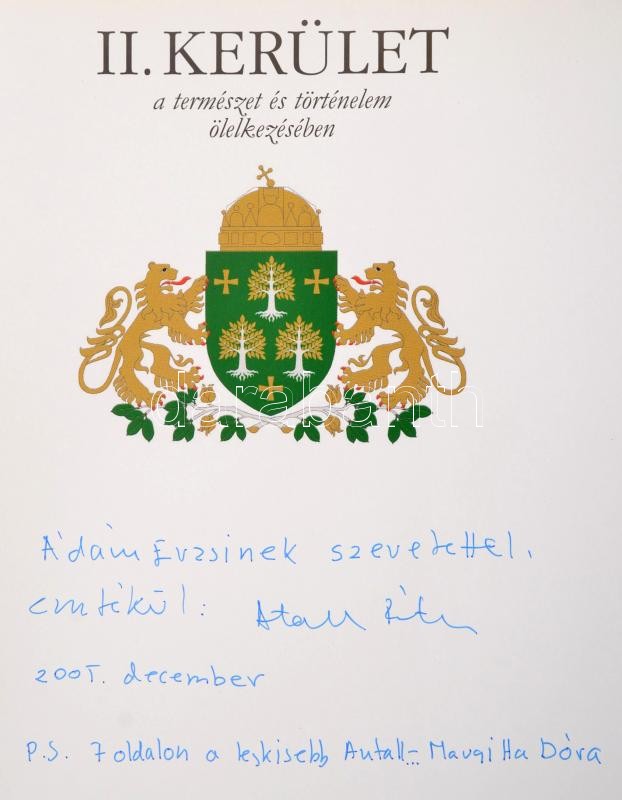 II. KERÜLET
a természet és történelem
ölelkezésében
darabanth
Ádám Evzsinek szeretettel,
emlékül:
2005. december
P.S. 7 oldalon a legkisebb Antall- Dóra